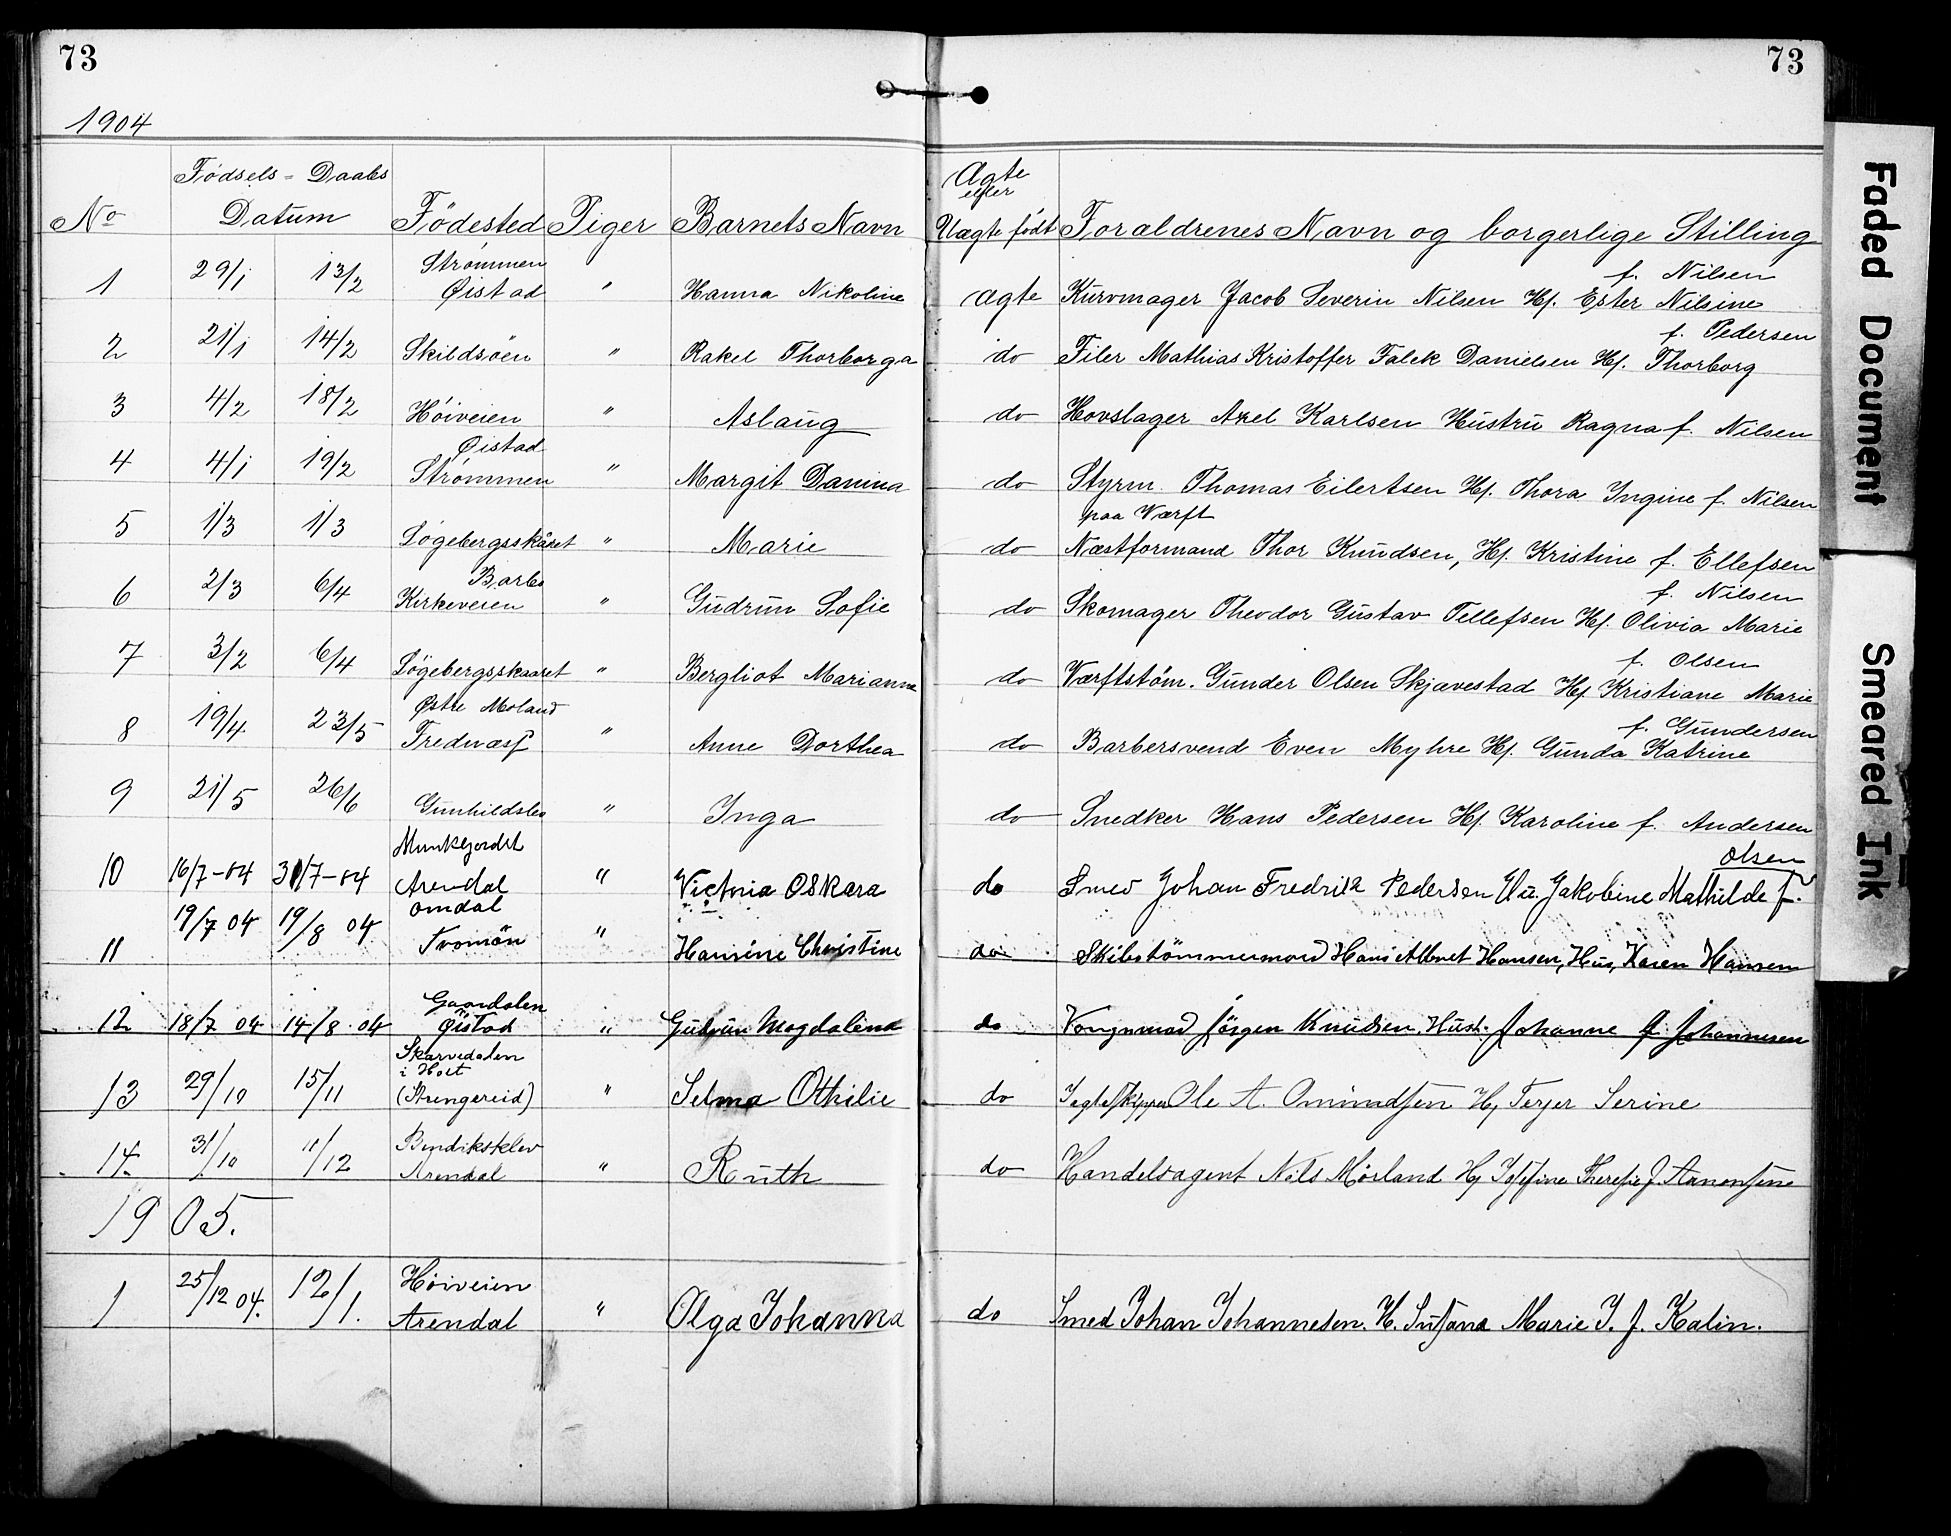 73
73
1904
Fødsels - Daabs
Datum
No
Fødested
Piger
Barnets Navn
Ægte
eller
Uægte født
Forældrenes Navn og borgerlige Stilling
1 29/1 13/2 Strømmen Øistad " Hanna Nikoline ægte Kurvmager Jacob Severin Nilsen Hj. Ester Nilsine f. Nilsen
2 21/1 14/2 Skildsöen " Rakel Thorborga do Filer Mathias Kristoffer Falck Danielsen Hj. Thorborg f. Pedersen
3 4/2 18/2 Höiveien " Aslaug do Hovslager Axel Karlsen Hustru Ragna f. Nilsen
4 4/1 19/2 Øistad Strømmen " Margit Danina do Styrm. Thomas Eilertsen Hj. Thora Ingine f. Nilsen
5 1/3 1/3 Løgebergsskåret " Marie do Næstformand paa Værft Thor Knudsen, Hj. Kristine f. Ellefsen
6 2/3 6/4 Barbo Kirkeveien " Gudrun Sofie do Skomager Theodor Gustav Tellefsen Hj. Olivia Marie f. Nilsen
7 3/2 6/4 Løgebergsskaaret " Bergliot Marianne do Værftstøm. Gunder Olsen Skjævestad Hj Kristiane Marie f. Olsen
8 19/4 23/5 Østre Moland " Anne Dorthea do Barbersvend Even Myhre Hj. Gunda Katrine f. Gundersen
9 21/5 26/6 " Inga do Snedker Hans Pedersen Hj. Karoline f. Andersen
10 16/7-04 31/7-04 Munkejordet Arendal " Victoria Oskara do Smed Johan Fredrik Pedersen Hu. Jakobine Mathilde f. Olsen
11 19/7 04 19/8 04 Omdal Tromön " Hansine Christine do Skibstömmermand Hans Albret Hansen, Hus, Karen Hansen
12 18/7 04 14/8 04 Gaardalen Öistad " Gudrun Magdalena do Vongnmand Jörgen Knudsen, Hust. Johanne f. Johannesen
13 29/10 15/11 Skarvedalen i Holt (Strengereid) " Selma Othilie do Jagteskipper Ole A. Omundsen Hj Terjer Serine
14. 31/10 11/12 Bendiksklev Arendal " Ruth do Handelsagent Nils Mörland Hj Josefine Theresie f. Aanonsene
1905.
1 25/12 04. 12/1. Høiveien Arendal " Olga Johanna do Smed Johan Johannesen. H. Susana Marie J. f. Kalin.
Faded Document
Smeared Ink